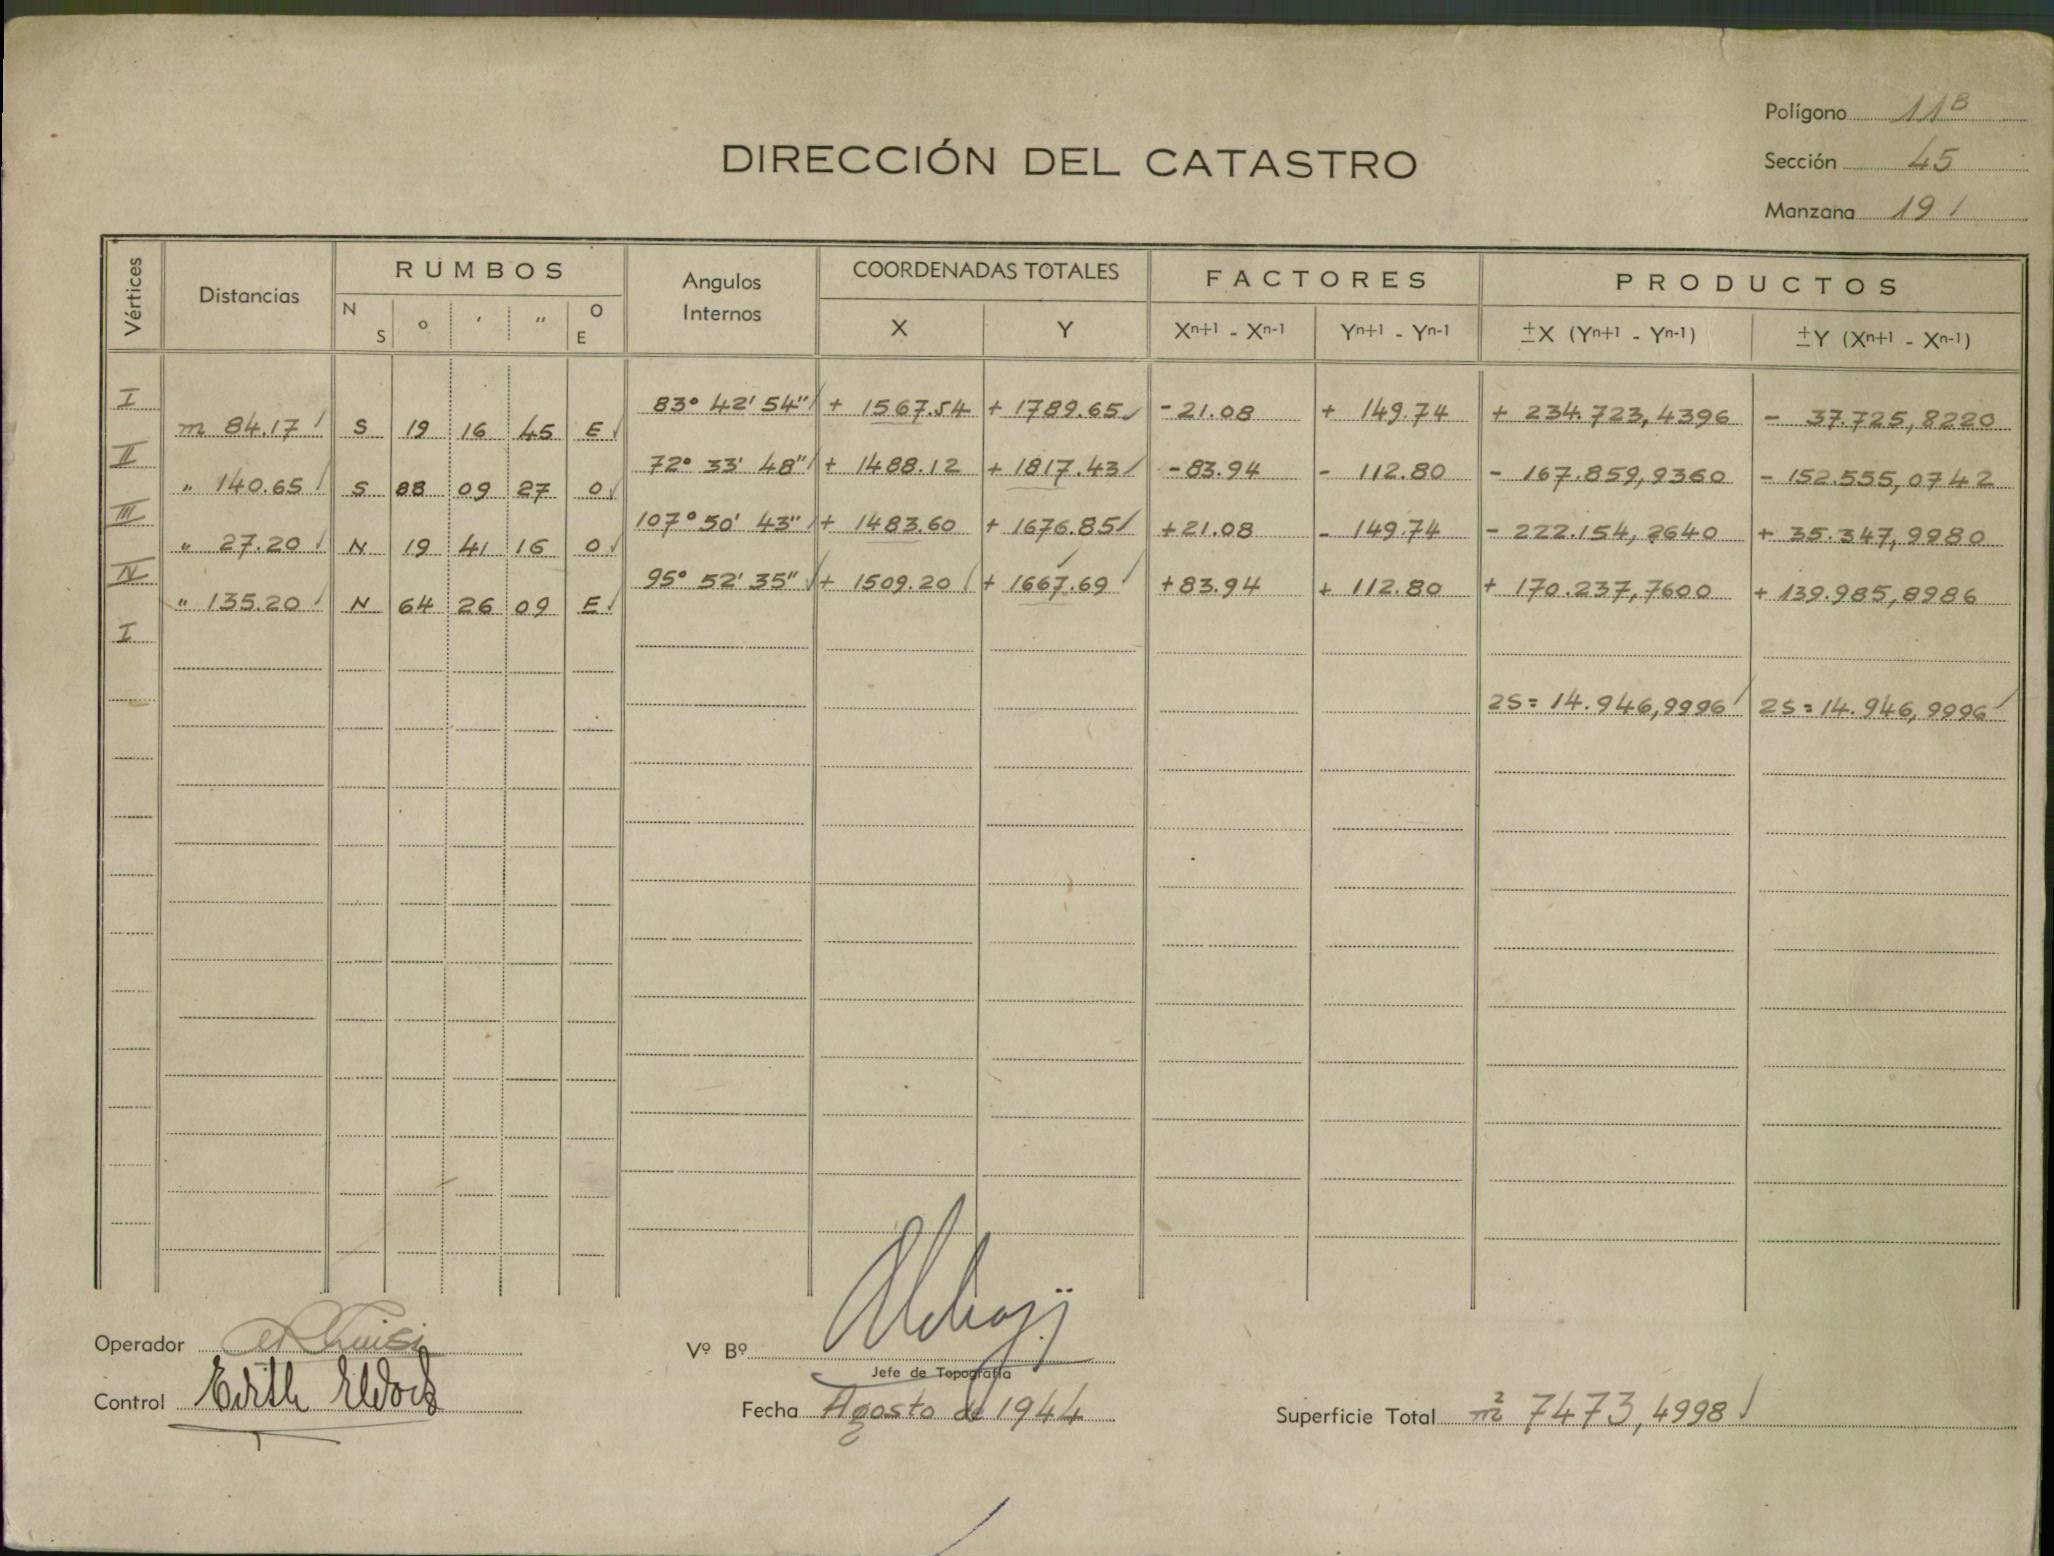 Polígono 11B
DIRECCIÓN DEL CATASTRO
Sección 45
Manzana 191
Vértices Distancias RUMBOS N S ° ' " O E Angulos Internos COORDENADAS TOTALES X Y FACTORES Xn+1 - Xn-1 Yn+1 - Yn-1 PRODUCTOS ±X (Yn+1 - Yn-1) ±Y (Xn+1 - Xn-1)
I 83° 42' 54" + 1567.54 + 1789.65 - 21.08 + 149.74 + 234.723,4396 - 37.725,8220
m 84.17 S 19 16 45 E
II 72° 33' 48" + 1488.12 + 1817.43 - 83.94 - 112.80 - 167.859,9360 - 152.555,0742
" 140.65 S 88 09 27 O
III 107° 50' 43" + 1483.60 + 1676.85 + 21.08 - 149.74 - 222.154,2640 + 35.347,9980
" 27.20 N 19 41 16 O
IV 95° 52' 35" + 1509.20 + 1667.69 + 83.94 + 112.80 + 170.237,7600 + 139.985,8986
" 135.20 N 64 26 09 E
I
2S = 14.946,9996 2S = 14.946,9996
Operador
Vº Bº
Jefe de Topografía
Control Edith
Fecha Agosto de 1944
Superficie Total m² 7473,4998